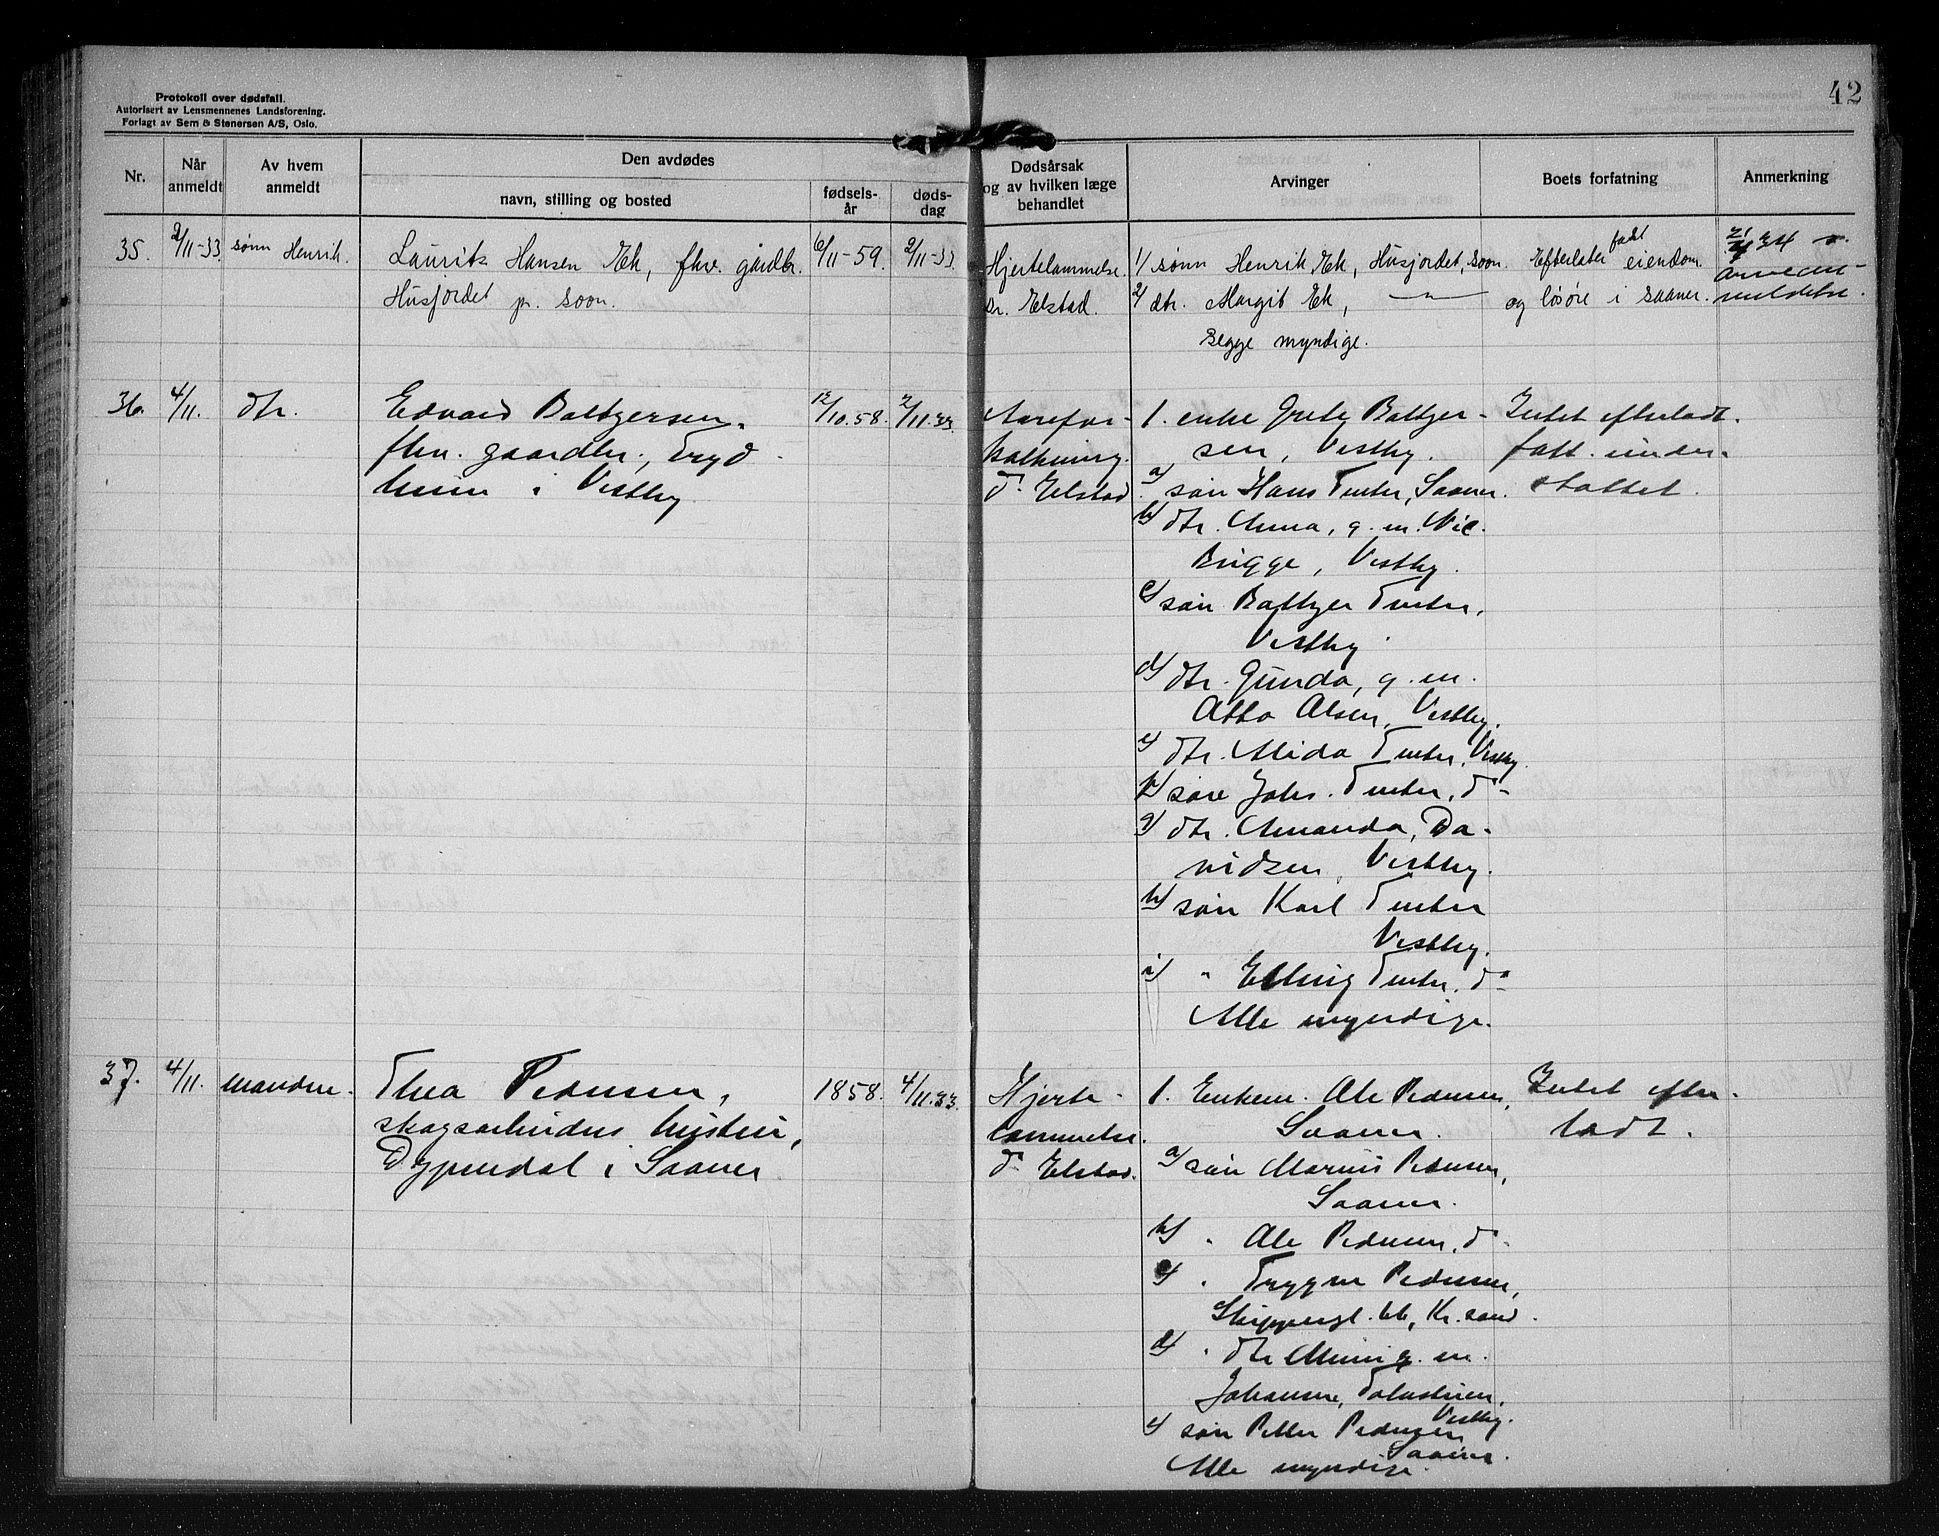 Protokoll over dødsfall.
Autorisert av Lensmennenes Landsforening.
Forlagt av Sem & Stenersen A/S, Oslo.
42
Nr.
Når anmeldt
Av hvem anmeldt
Den avdødes
navn, stilling og bosted
fødsels-år
døds-dag
Dødsårsak og av hvilken læge behandlet
Arvinger
Boets forfatning
Anmerkning
35.
2/11-33.
sønn Henrik.
Laurits Hansen Ek, fhv. gårdbr.
Husjordet pr. Soon.
6/11-59.
2/11-33
Hjertelammelse.
Dr. Elstad.
1/ sønn Henrik Ek, Husjordet, Soon.
2/ dtr. Margit Ek, —"—
Begge myndige.
Efterlater fast eiendom
og løsøre i Saaner.
21/4 34
meldelse.
36.
4/11.
dtr.
Edvard Baltzersen,
fhv. gaardbr., Tryd-
heim i Vestby
12/10.58.
2/11.33.
Aarefor-
kalkning.
d- Elstad.
1. enke Grete Baltzer-
sen, Vestby.
a/ søn Hans Tveter, Saaner.
b/ dtr. Anna, g.m. Nic.
Brigge, Vestby.
c/ søn Baltzer Tveter,
Vestby.
d/ dtr. Gunda, g.m.
Otto Olsen, Vestby.
e/ dtr. Alida Tveter, Vestby.
f/ søn Johs. Tveter, d-
g/ dtr. Amanda, Da-
vidsen, Vestby.
h/ søn Karl Tveter
Vestby.
i/ " Elling Tveter, d-
Alle myndige.
Intet efterladt.
fatt. under-
støttet.
37.
4/11.
manden.
Thea Pedersen,
skogsarbeiders hustru,
Dypendal i Saaner
1858.
4/11.33.
Hjerte-
lammelse.
d- Elstad.
1. Enkem. Ole Pedersen,
Saaner.
a/ søn Marius Pedersen,
Saaner.
b/ " Ole Pedersen, d-
c/ " Trygve Pedersen,
Skippergt. 66, Kr.sand.
d/ " dtr g.m.
Johansen,
Vestby.
e/ søn Petter Pedersen
Saaner.
Alle myndige.
Intet efter-
ladt.